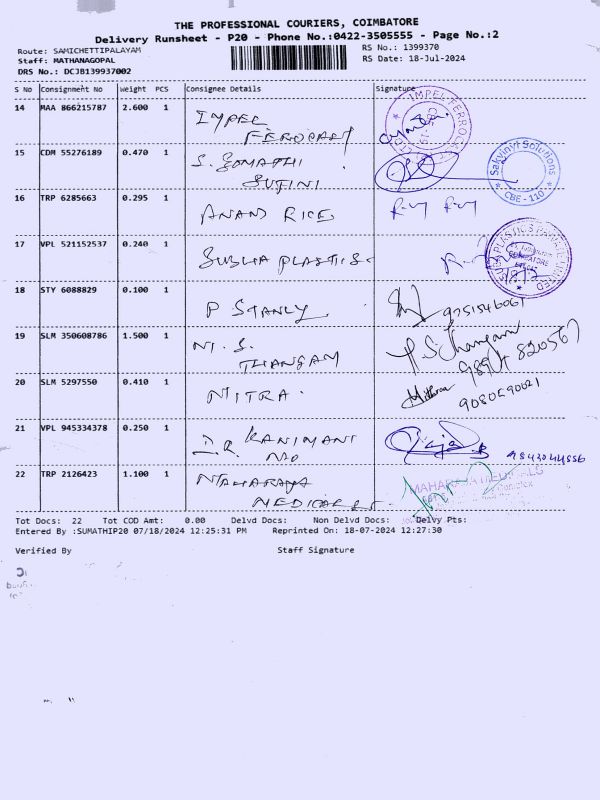 THE PROFESSIONAL COURIERS, COIMBATORE
Delivery Runsheet - P20 - Phone No.:0422-3505555 - Page No.:2
Route: SAMICHETTIPALAYAM
RS No.: 1399370
Staff: MATHANAGOPAL
RS Date: 18-Jul-2024
DRS No.: DCJB139937002
S No Consignment No Weight PCS Consignee Details Signature
14 MAA 866215787 2.600 1 IMPEL
FEROCAST
IMPEL FERROCAST
15 CDM 55276189 0.470 1 S. GOMATHI
SUJINI
Sakvinyt Solutions
CBE - 110
16 TRP 6285663 0.295 1 ANAND RICE
17 VPL 521152537 0.240 1 SUBHA PLASTICS
PLASTICS PRIVATE LIMITED
18 STY 6088829 0.100 1 P STANLY
9751546061
19 SLM 350608786 1.500 1 M. S.
THANGAM
20 SLM 5297550 0.410 1 MITRA.
21 VPL 945334378 0.250 1 DR KANIMANI
MD
22 TRP 2126423 1.100 1 MAHARAJA
MEDICALS
Tot Docs: 22 Tot COD Amt: 0.00 Delvd Docs: Non Delvd Docs: Delvy Pts:
Entered By :SUMATHIP20 07/18/2024 12:25:31 PM Reprinted On: 18-07-2024 12:27:30
Verified By Staff Signature